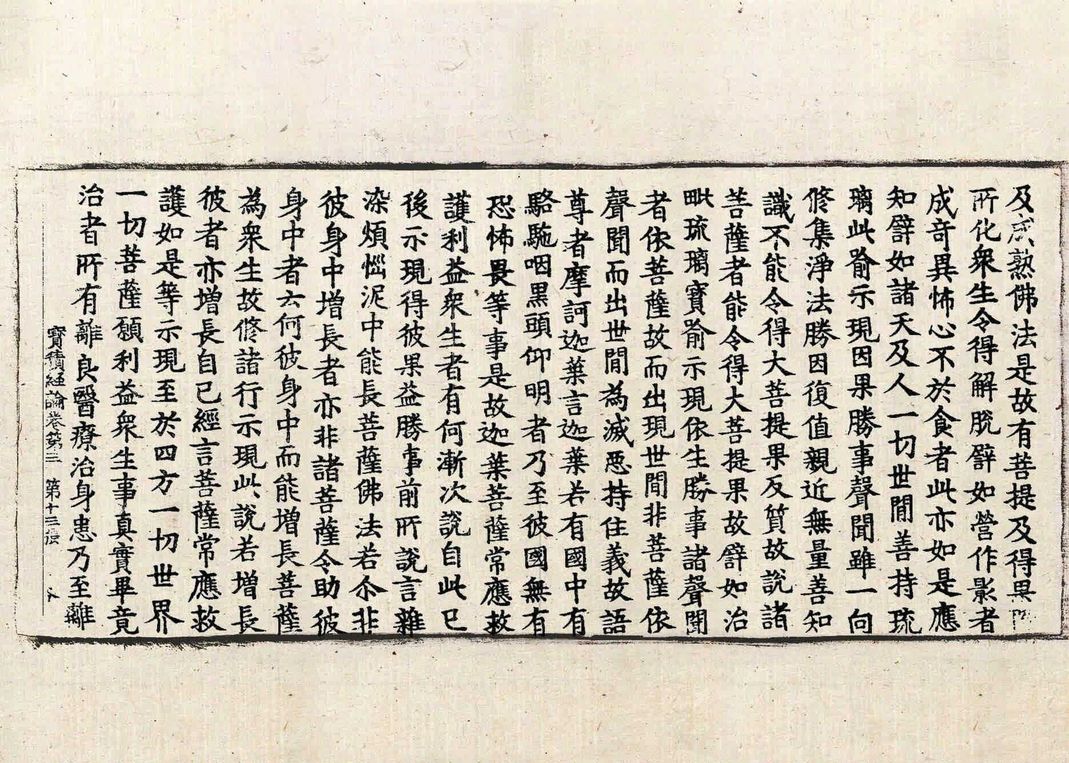 及成熟佛法是故有菩提及得果
所化衆生令得解脫譬如營作影者
成奇異怖心不於食者此亦如是應
知譬如諸天及人一切世閒善持琉
璃此喻示現因果勝事聲聞雖一向
修集淨法勝因復值親近無量善知
識不能令得大菩提果反質故說諸
菩薩者能令得大菩提果故譬如治
毗琉璃寶喻示現依生勝事諸聲聞
者依菩薩故而出現世閒非菩薩依
聲聞而出世閒為滅惡持住義故語
尊者摩訶迦葉言迦葉若有國中有
駱駞咽黑頭仰明者乃至彼國無有
恐怖畏等事是故迦葉菩薩常應救
護利益衆生者有何漸次說自此已
後示現得彼果益勝事前所說言雜
染煩惱泥中能長菩薩佛法若尒非
彼身中增長者亦非諸菩薩令助彼
身中者云何彼身中而能增長菩薩
為衆生故修諸行示現此說若增長
彼者亦增長自已經言菩薩常應救
護如是等示現至於四方一切世界
一切菩薩願利益衆生事真實畢竟
治者所有離良醫療治身患乃至離
寶積經論卷第三 第十三張